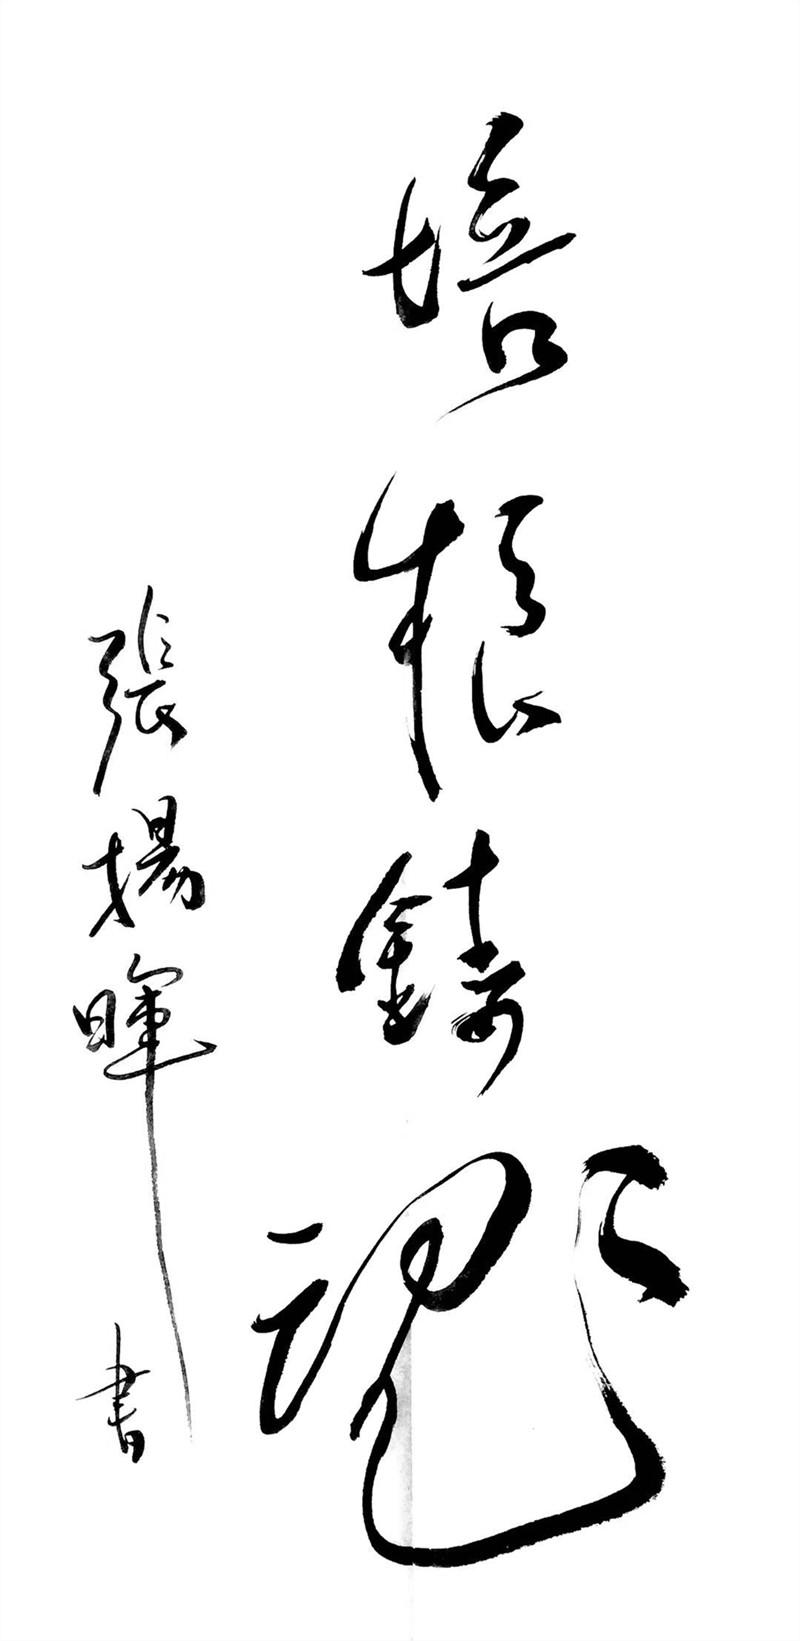 培根鑄魂
張揚暉書